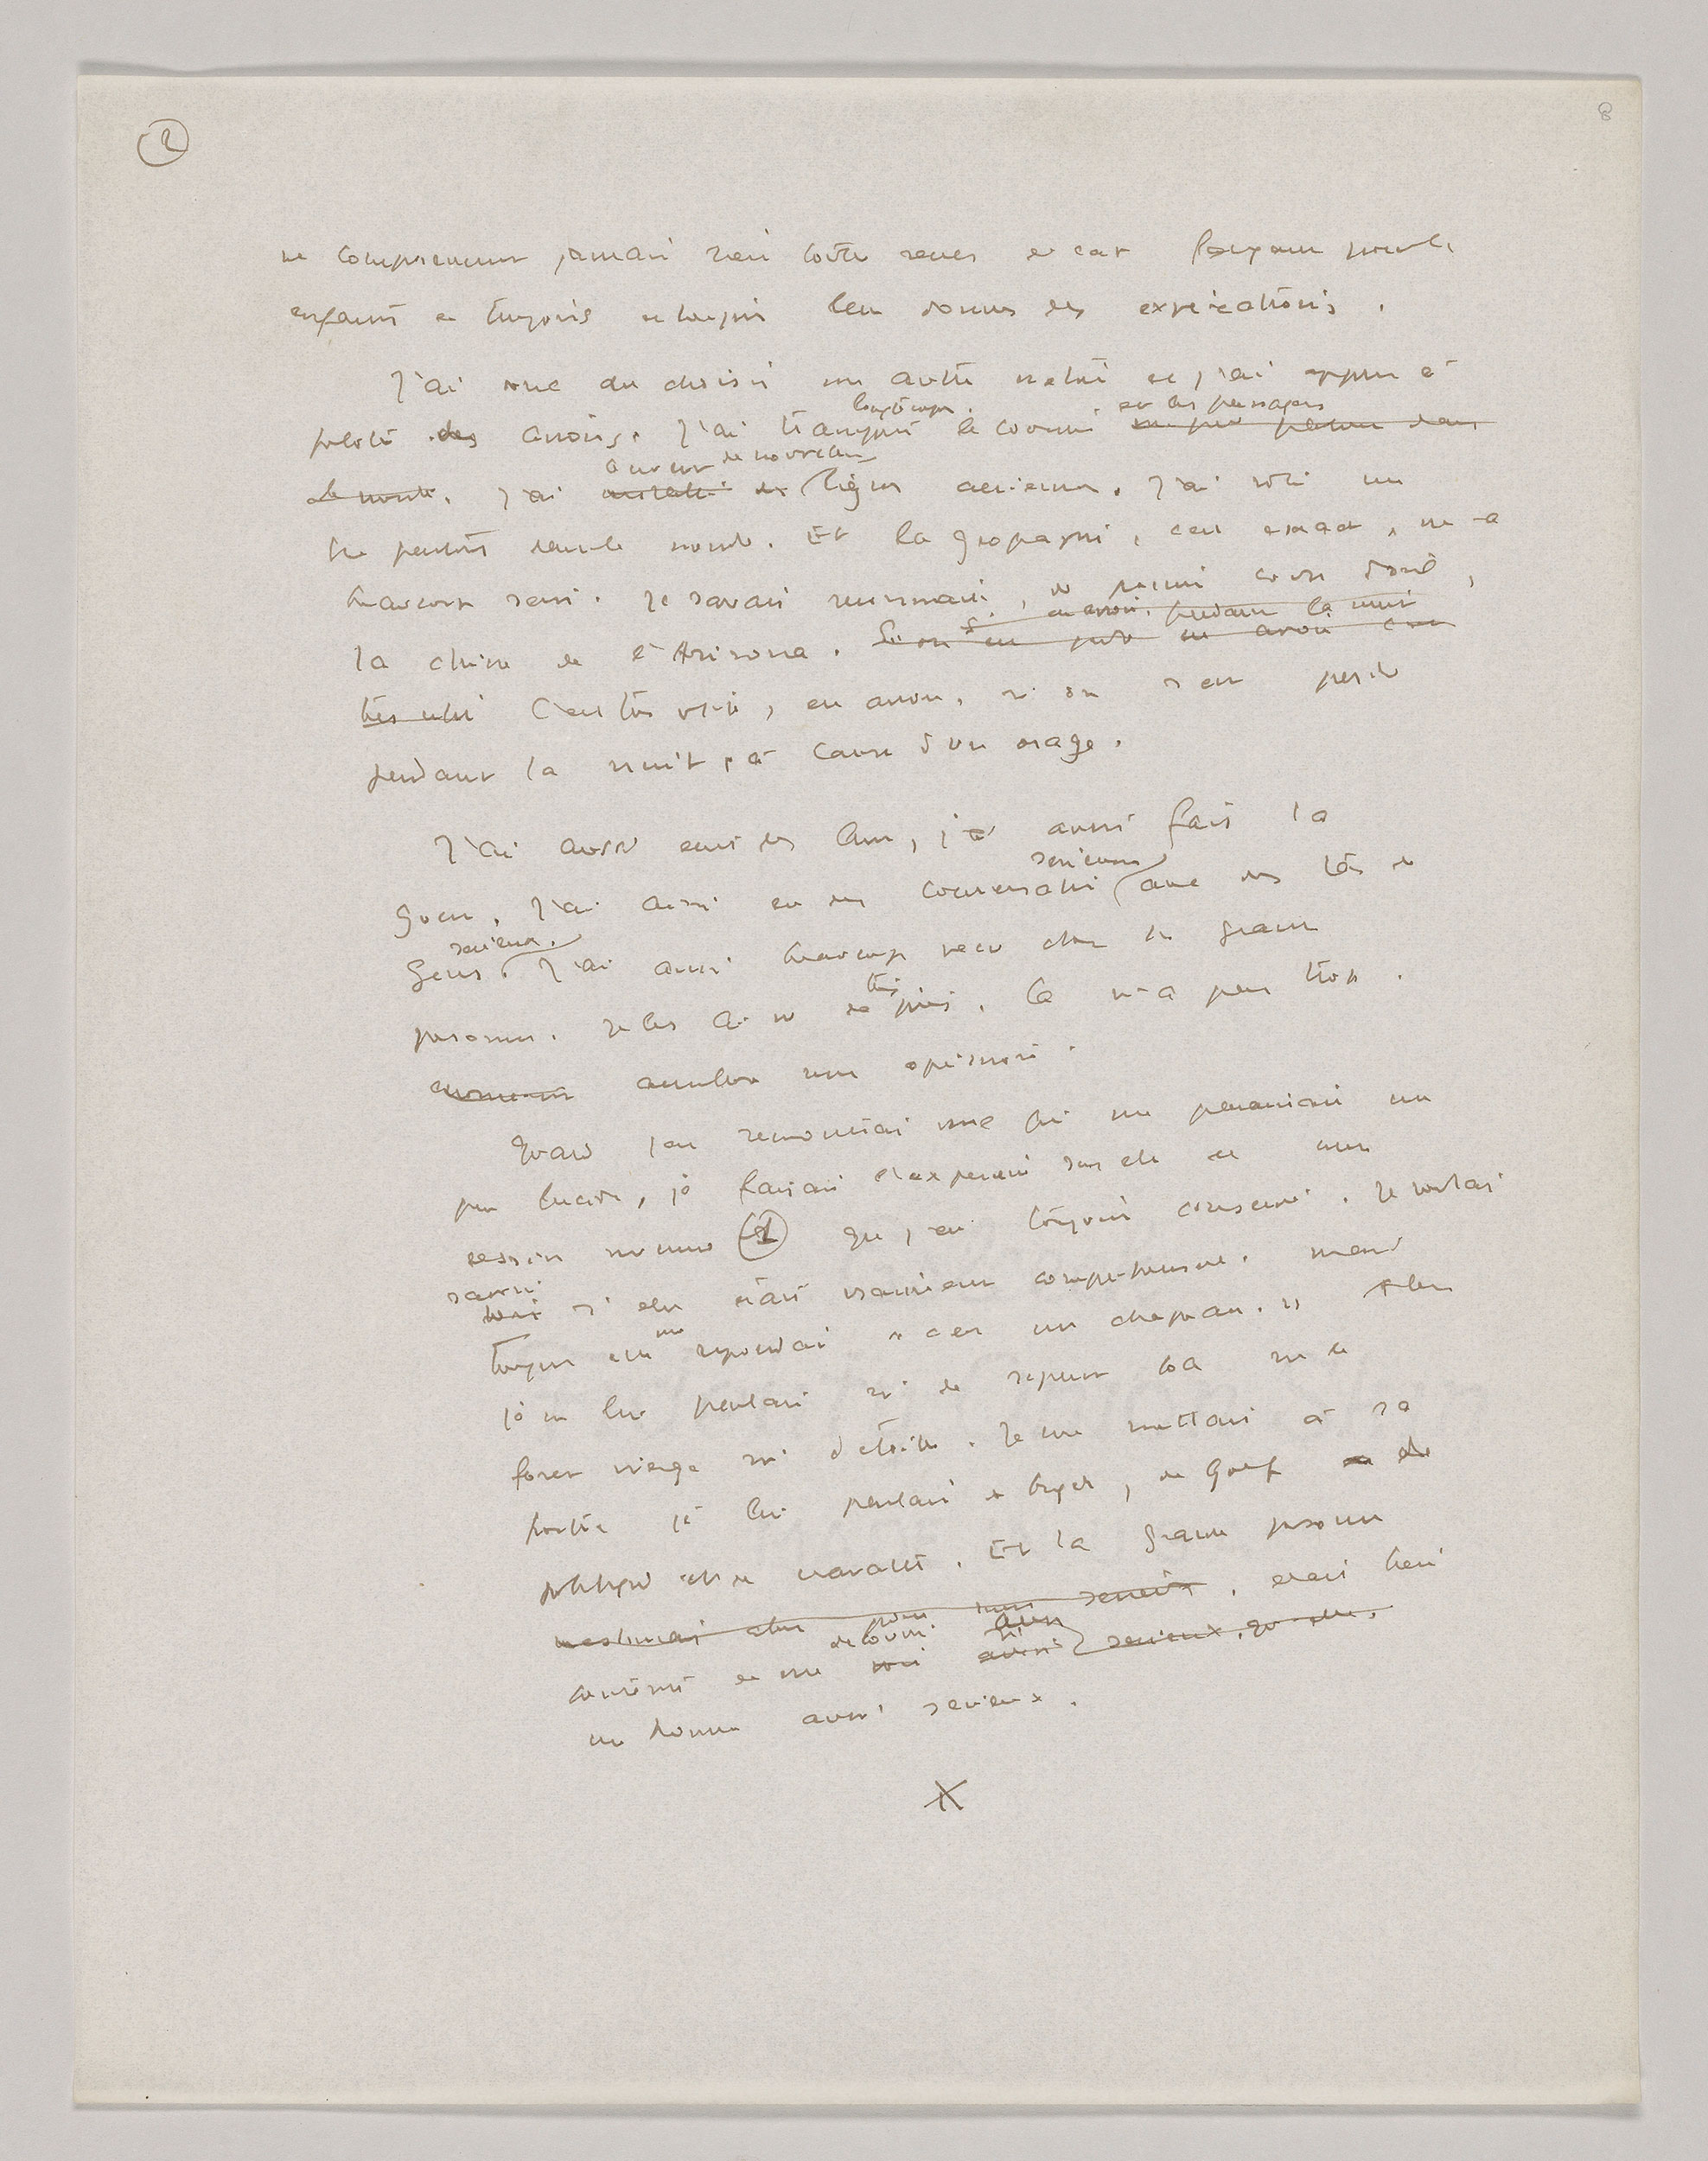 2
8
ne comprennent jamais rien toutes seules et c'est fatigant pour les
enfants de toujours et toujours leur donner des explications.
J'ai donc du choisir un autre metier et j'ai appris à
piloter des avions. J'ai transporté longtemps le courrier et les passagers un peu partout dans
le monde. J'ai installé des ouvert de nouvelles lignes aeriennes. J'ai volé un
peu partout dans le monde. Et la geographie, c'est exact, m'a
beaucoup servi. Je savais reconnaitre, du premier coup d'œil,
la chine de l'Arizona. Si on en avion pendant la nuit
très utile C'est très utile, en avion, si on s'est perdu
pendant la nuit, à cause d'un orage.
J'ai aussi ecrit des livres, j'ai aussi fait la
guerre. J'ai ainsi eu des conversations serieuses avec des tas de
gens serieux. J'ai aussi beaucoup vecu chez les grandes
personnes. Je les ai vu de très près. Ca n'a pas trop
ameliore mon opinion.
Quand j'en rencontrais une qui me paraissait un
peu lucide, je faisais l'experience sur elle de mon
dessin numero 1 que j'ai toujours conservé. Je voulais
savoir si elle etait vraiment comprehensive. Mais
toujours elle me repondait "c'est un chapeau." Alors
je ne lui parlais ni de serpent boa ni de
foret vierge ni d'etoiles. Je me mettais à sa
portée je lui parlais de bridge, de golf de
politique et de cravates. Et la grande personne
etait bien
contente de me decouvrir
un homme aussi serieux.
X